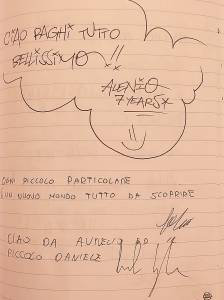 CIAO RAGHI TUTTO
BELLISSIMO !!
ALENIO
7 YEARS
OGNI PICCOLO PARTICOLARE
UN NUOVO MONDO TUTTO DA SCOPRIRE
CIAO DA AURELIO ED IO
PICCOLO DANIELE